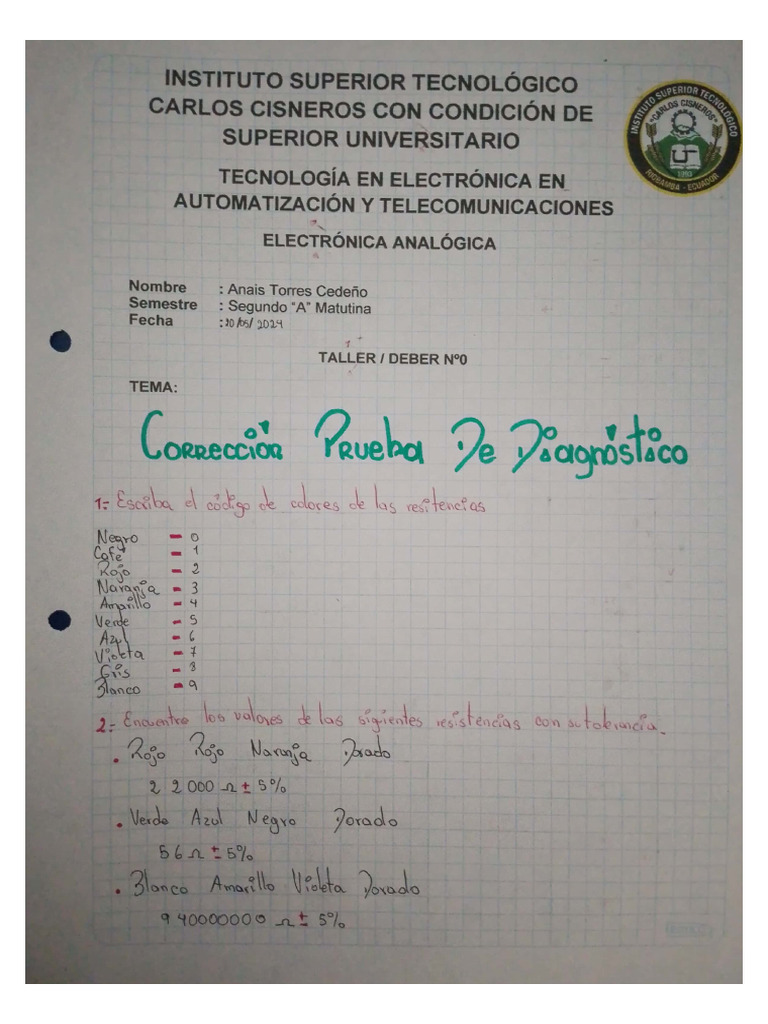 INSTITUTO SUPERIOR TECNOLÓGICO
CARLOS CISNEROS CON CONDICIÓN DE
SUPERIOR UNIVERSITARIO
INSTITUTO SUPERIOR TECNOLOGICO
"CARLOS CISNEROS"
RIOBAMBA - ECUADOR
TECNOLOGÍA EN ELECTRÓNICA EN
AUTOMATIZACIÓN Y TELECOMUNICACIONES
ELECTRÓNICA ANALÓGICA
Nombre : Anais Torres Cedeño
Semestre : Segundo "A" Matutina
Fecha : 20/05/2024
TALLER / DEBER Nº0
TEMA:
Corrección Prueba De Diagnóstico
1.- Escriba el código de colores de las resitencias
Negro - 0
Cafe - 1
Rojo - 2
Naranja - 3
Amarillo - 4
Verde - 5
Azul - 6
Violeta - 7
Gris - 8
Blanco - 9
2.- Encuentre los valores de las sigientes resistencias con su tolerancia.
• Rojo Rojo Naranja Dorado
2 2 000 Ω ± 5%
• Verde Azul Negro Dorado
56 Ω ± 5%
• Blanco Amarillo Violeta Dorado
940000000 Ω ± 5%